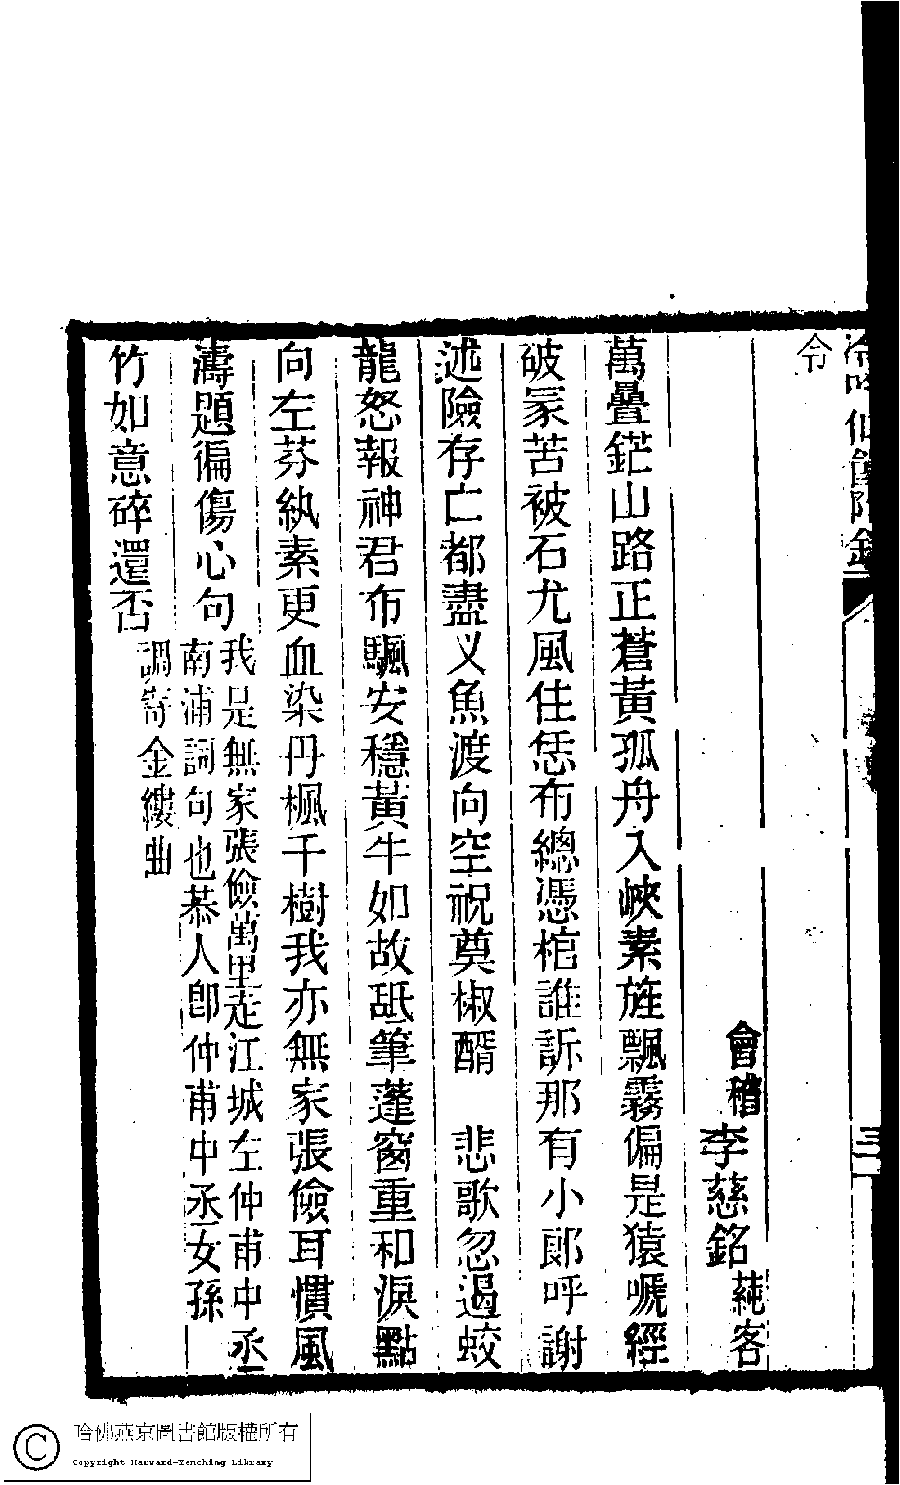 冷吟仙館附錄
三
令
會稽李慈銘蒓客
萬疊鋩山路正蒼黃孤舟入峽素旌飄霧偏是猿嗁經
破冢苦被石尤風住恁布總憑棺誰訴那有小郎呼謝
述險存亡都盡义魚渡向空祝奠椒醑　悲歌忽過蛟
龍怒報神君布颿安穩黃牛如故舐筆蓬窗重和淚點
向左芬紈素更血染丹楓千樹我亦無家張儉耳慣風
濤題徧傷心句我是無家張儉萬里走江城左仲甫中丞
南浦詞句也恭人卽仲甫中丞女孫
竹如意碎還否調寄金縷曲
哈佛燕京圖書館版權所有
Copyright Harvard-Yenching Library